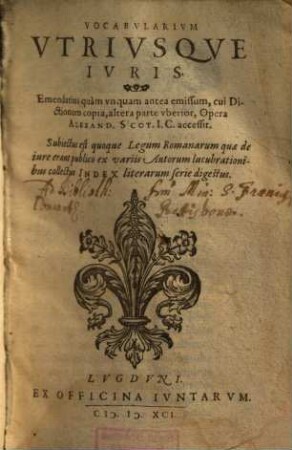 VOCABVLARIVM
VTRIVSQVE
IVRIS.
Emendatius quàm vnquam antea emissum, cui Di-
ctionum copia, altera parte vberior, Opera
ALEXAND. SCOT. I. C. accessit.
Subiectus est quoque Legum Romanarum quæ de
iure erant publico ex variis Autorum lucubrationi-
bus collectus INDEX literarum serie digestus.
Ad Biblioth. Frm Min: S. Francis
Convent. Ratisbonæ
LVGDVNI.
EX OFFICINA IVNTARVM.
CIↃ. IↃ. XCI.